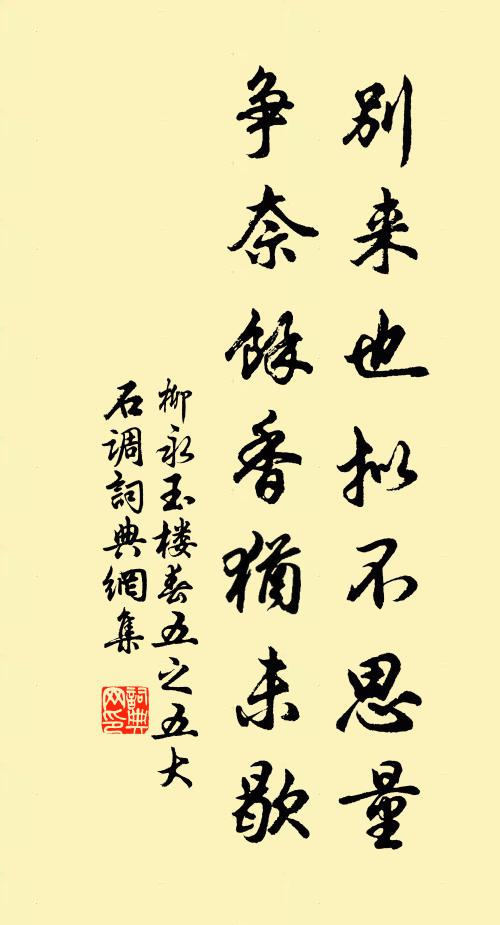 别来也拟不思量
争奈馀香犹未歇
柳永玉楼春五之五大
石调词典網集
詞典网印